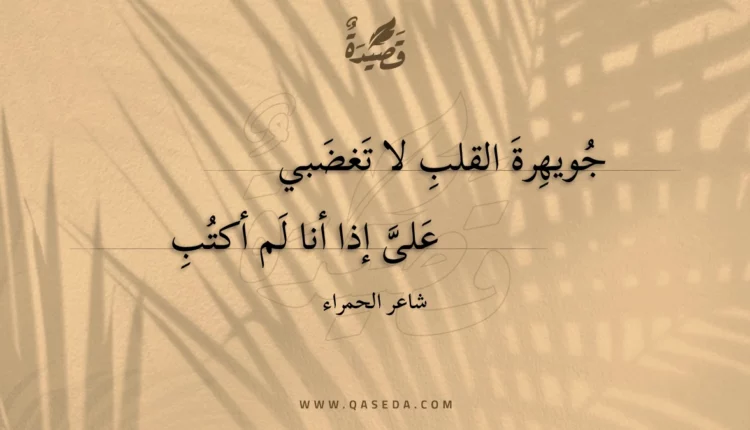 قَصِيدَةٌ
جُويهِرةَ القلبِ لا تَغضَبي
عَلىَّ إذا أنا لَم أكتُبِ
شاعر الحمراء
WWW.QASEDA.COM